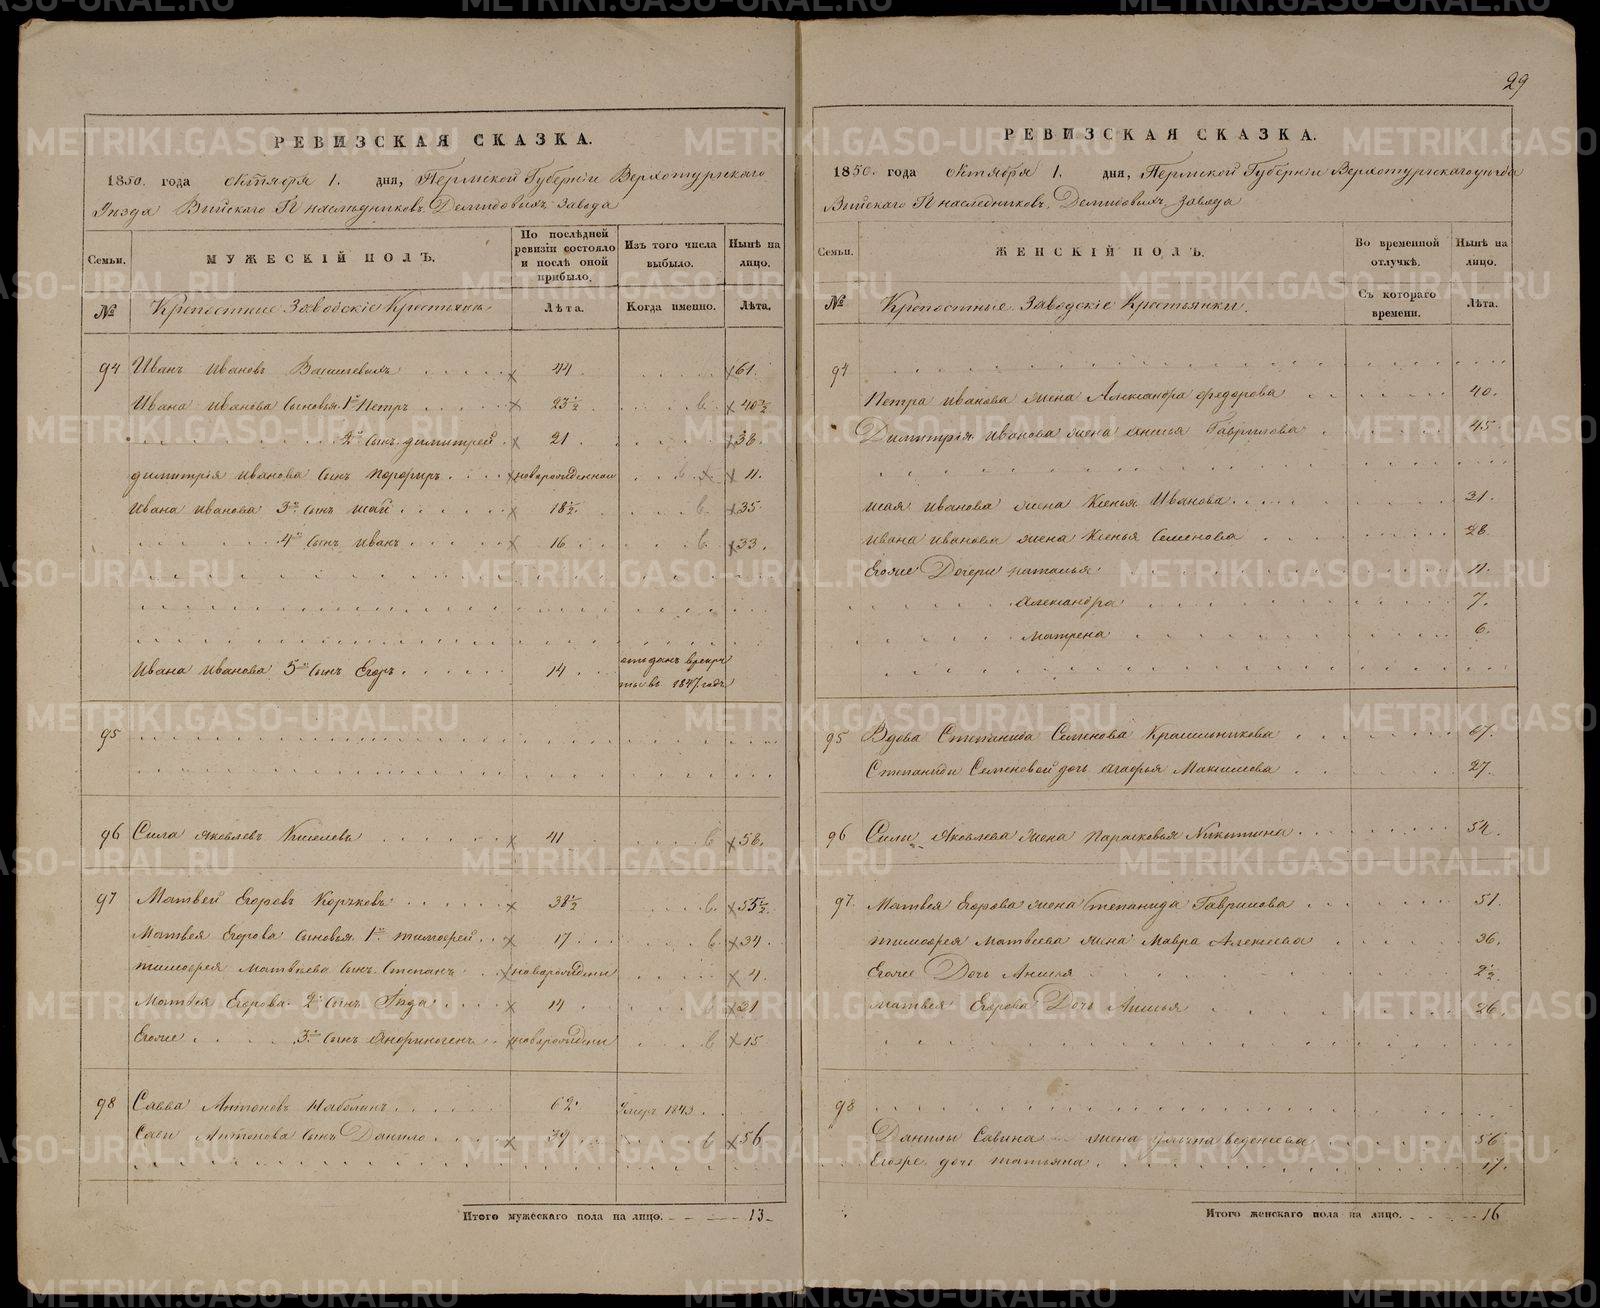 29
РЕВИЗСКАЯ СКАЗКА.
1850. года октября 1. дня, Пермской Губернiи Верхотурскаго
Уѣзда Выйскаго Гг. наслѣдниковъ Демидовыхъ Завода
Семьи.
МУЖЕСКIЙ ПОЛЪ.
По послѣдней ревизiи состояло и послѣ оной прибыло.
Изъ того числа выбыло.
Нынѣ на лицо.
№
Крѣпостные Заводскiе Крестьяне
Лѣта.
Когда именно.
Лѣта.
94 Иванъ Ивановъ 44 61.
Ивана Иванова Сыновья 1й Петръ 23½ 40½
2й Сынъ димитрей 21 38
димитрiя Иванова Сынъ Порфиръ новорожденной 11.
Ивана Иванова 3й Сынъ 18½ 35
4й Сынъ Иванъ 16 33.
Ивана Иванова 5й Сынъ Егоръ 14 отданъ въ рекруты въ 1847 годѣ
95
96 Сила Яковлевъ Киселевъ 41 58.
97 Матвей Егоровъ 38½ 55½
Матвея Егорова Сыновья 1й тимофей 17 34
тимофея Матвѣева Сынъ Степанъ новорожденный 4.
Матвея Егорова 2й Сынъ 14 31
Егоже 3й Сынъ новорожденный 15
98 Савва Антоновъ 62 Умеръ 1843
Савы Антонова Сынъ Данило 39 56
Итого мужескаго пола на лицо. 13
РЕВИЗСКАЯ СКАЗКА.
1850. года октября 1. дня, Пермской Губернiи Верхотурскаго уѣзда
Выйскаго Гг. наследниковъ Демидовыхъ завода
Семьи.
ЖЕНСКIЙ ПОЛЪ.
Во временной отлучкѣ.
Нынѣ на лицо.
№
Крѣпостные Заводскiе Крестьянки.
Съ котораго времени.
Лѣта.
94
Петра Иванова жена Александра Федорова 40.
Димитрiя Иванова жена Анисья Гаврилова 45
Иванова жена Ксенья Иванова 31.
Ивана Иванова жена Ксенья Семенова 28
Егоже Дочери наталья 11.
Александра 7.
Матрена 6.
95 Вдова Степанида Семенова Красильникова 67.
Степаниды Семеновой дочь Агафья Максимова 27.
96 Силы Яковлева жена Парасковья Никитина 54.
97. Матвея Егорова жена Степанида Гаврилова 51.
тимофея Матвеева жена Мавра Алексеева 36.
Егоже Дочь Анисья 2½
Матвея Егорова Дочь Анисья 26.
98
Данилы Савина жена 56
Егоже дочь татьяна 17.
Итого женскаго пола на лицо. 16
METRIKI.GASO-URAL.RU